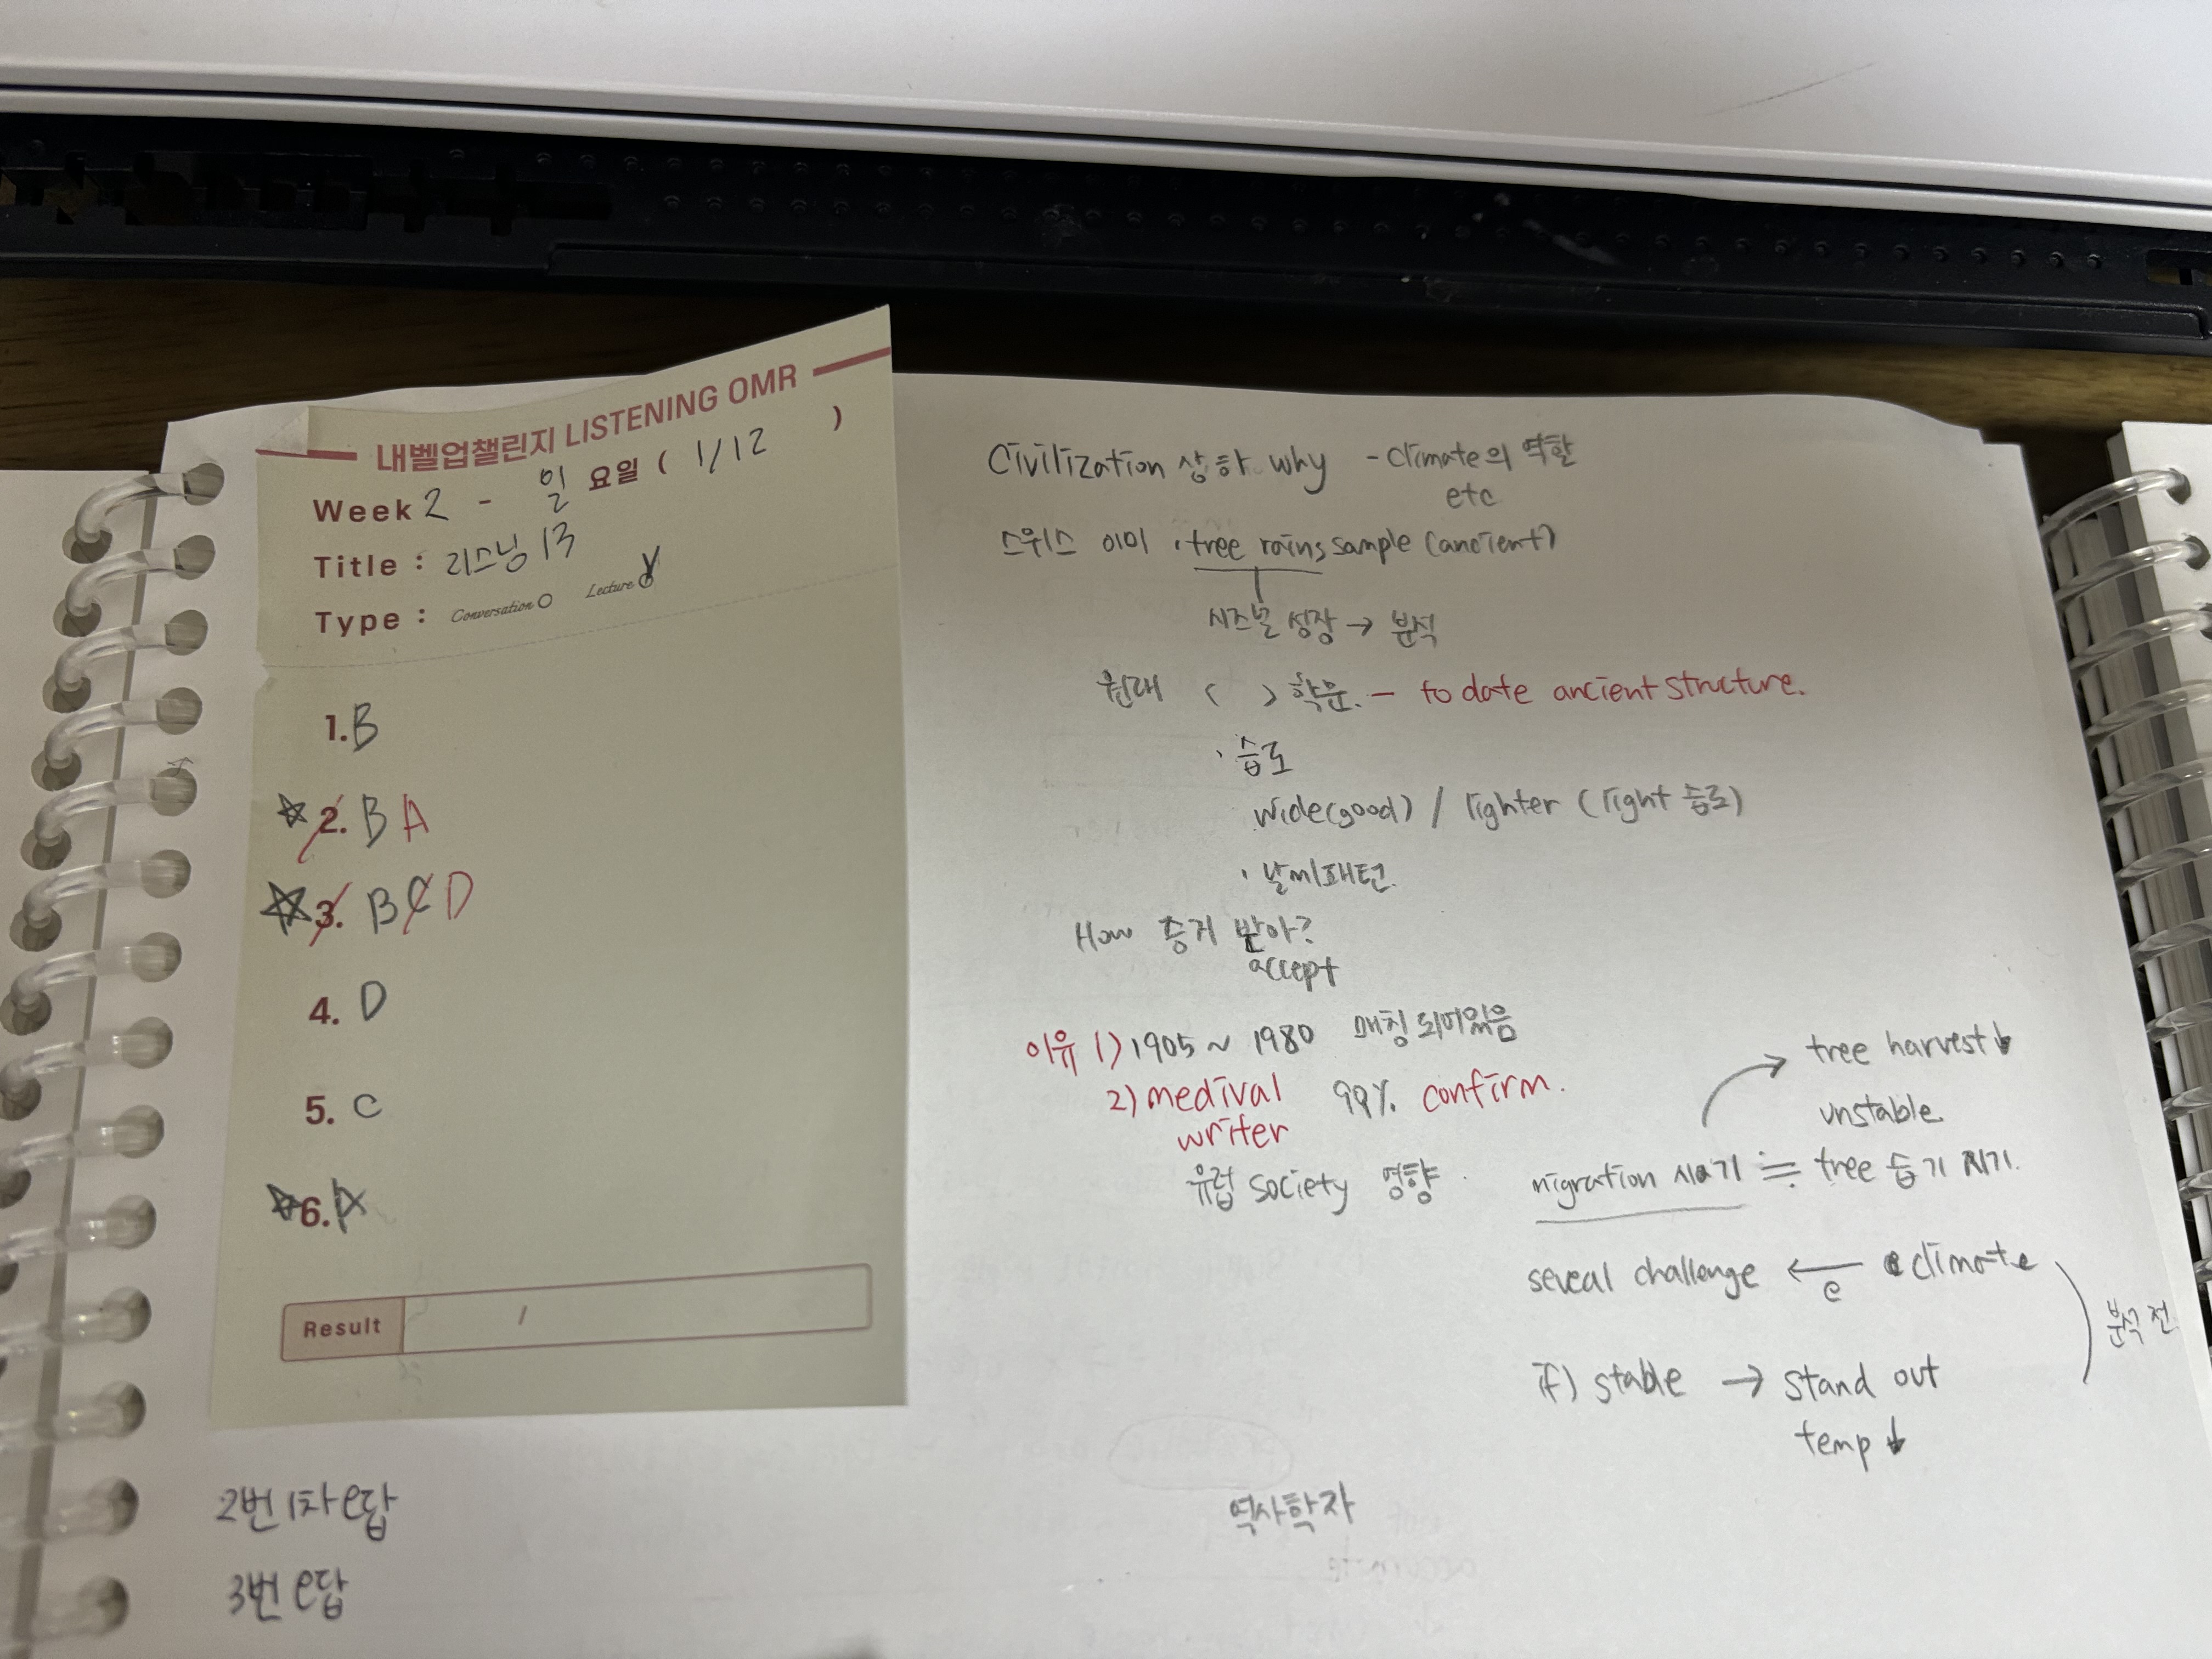 내벨업챌린지 LISTENING OMR
Week 2 - 일 요일 ( 1/12 )
Title : 리스닝 13
Type : Conversation Lecture
1. B
2. B A
3. B C D
4. D
5. C
6. A
Result /
2번 1차 e답
3번 e답
Civilization 상하 why - climate의 역할
etc
스위스 이미 · tree rains sample (ancient)
시즈널 성장 → 분석
원래 ( ) 학문. - to date ancient structure.
· 습도
wide(good) / lighter (light 습도)
· 날씨패턴.
How 증거 받아?
accept
이유 1) 1905 ~ 1980 매칭되어있음
2) medival 90% confirm.
writer
유럽 society 영향
tree harvest ↓
unstable
migration 시기 ≒ tree 습기 시기.
seveal challenge ← climate
e
분석 전
if) stable → stand out
temp ↓
역사학자